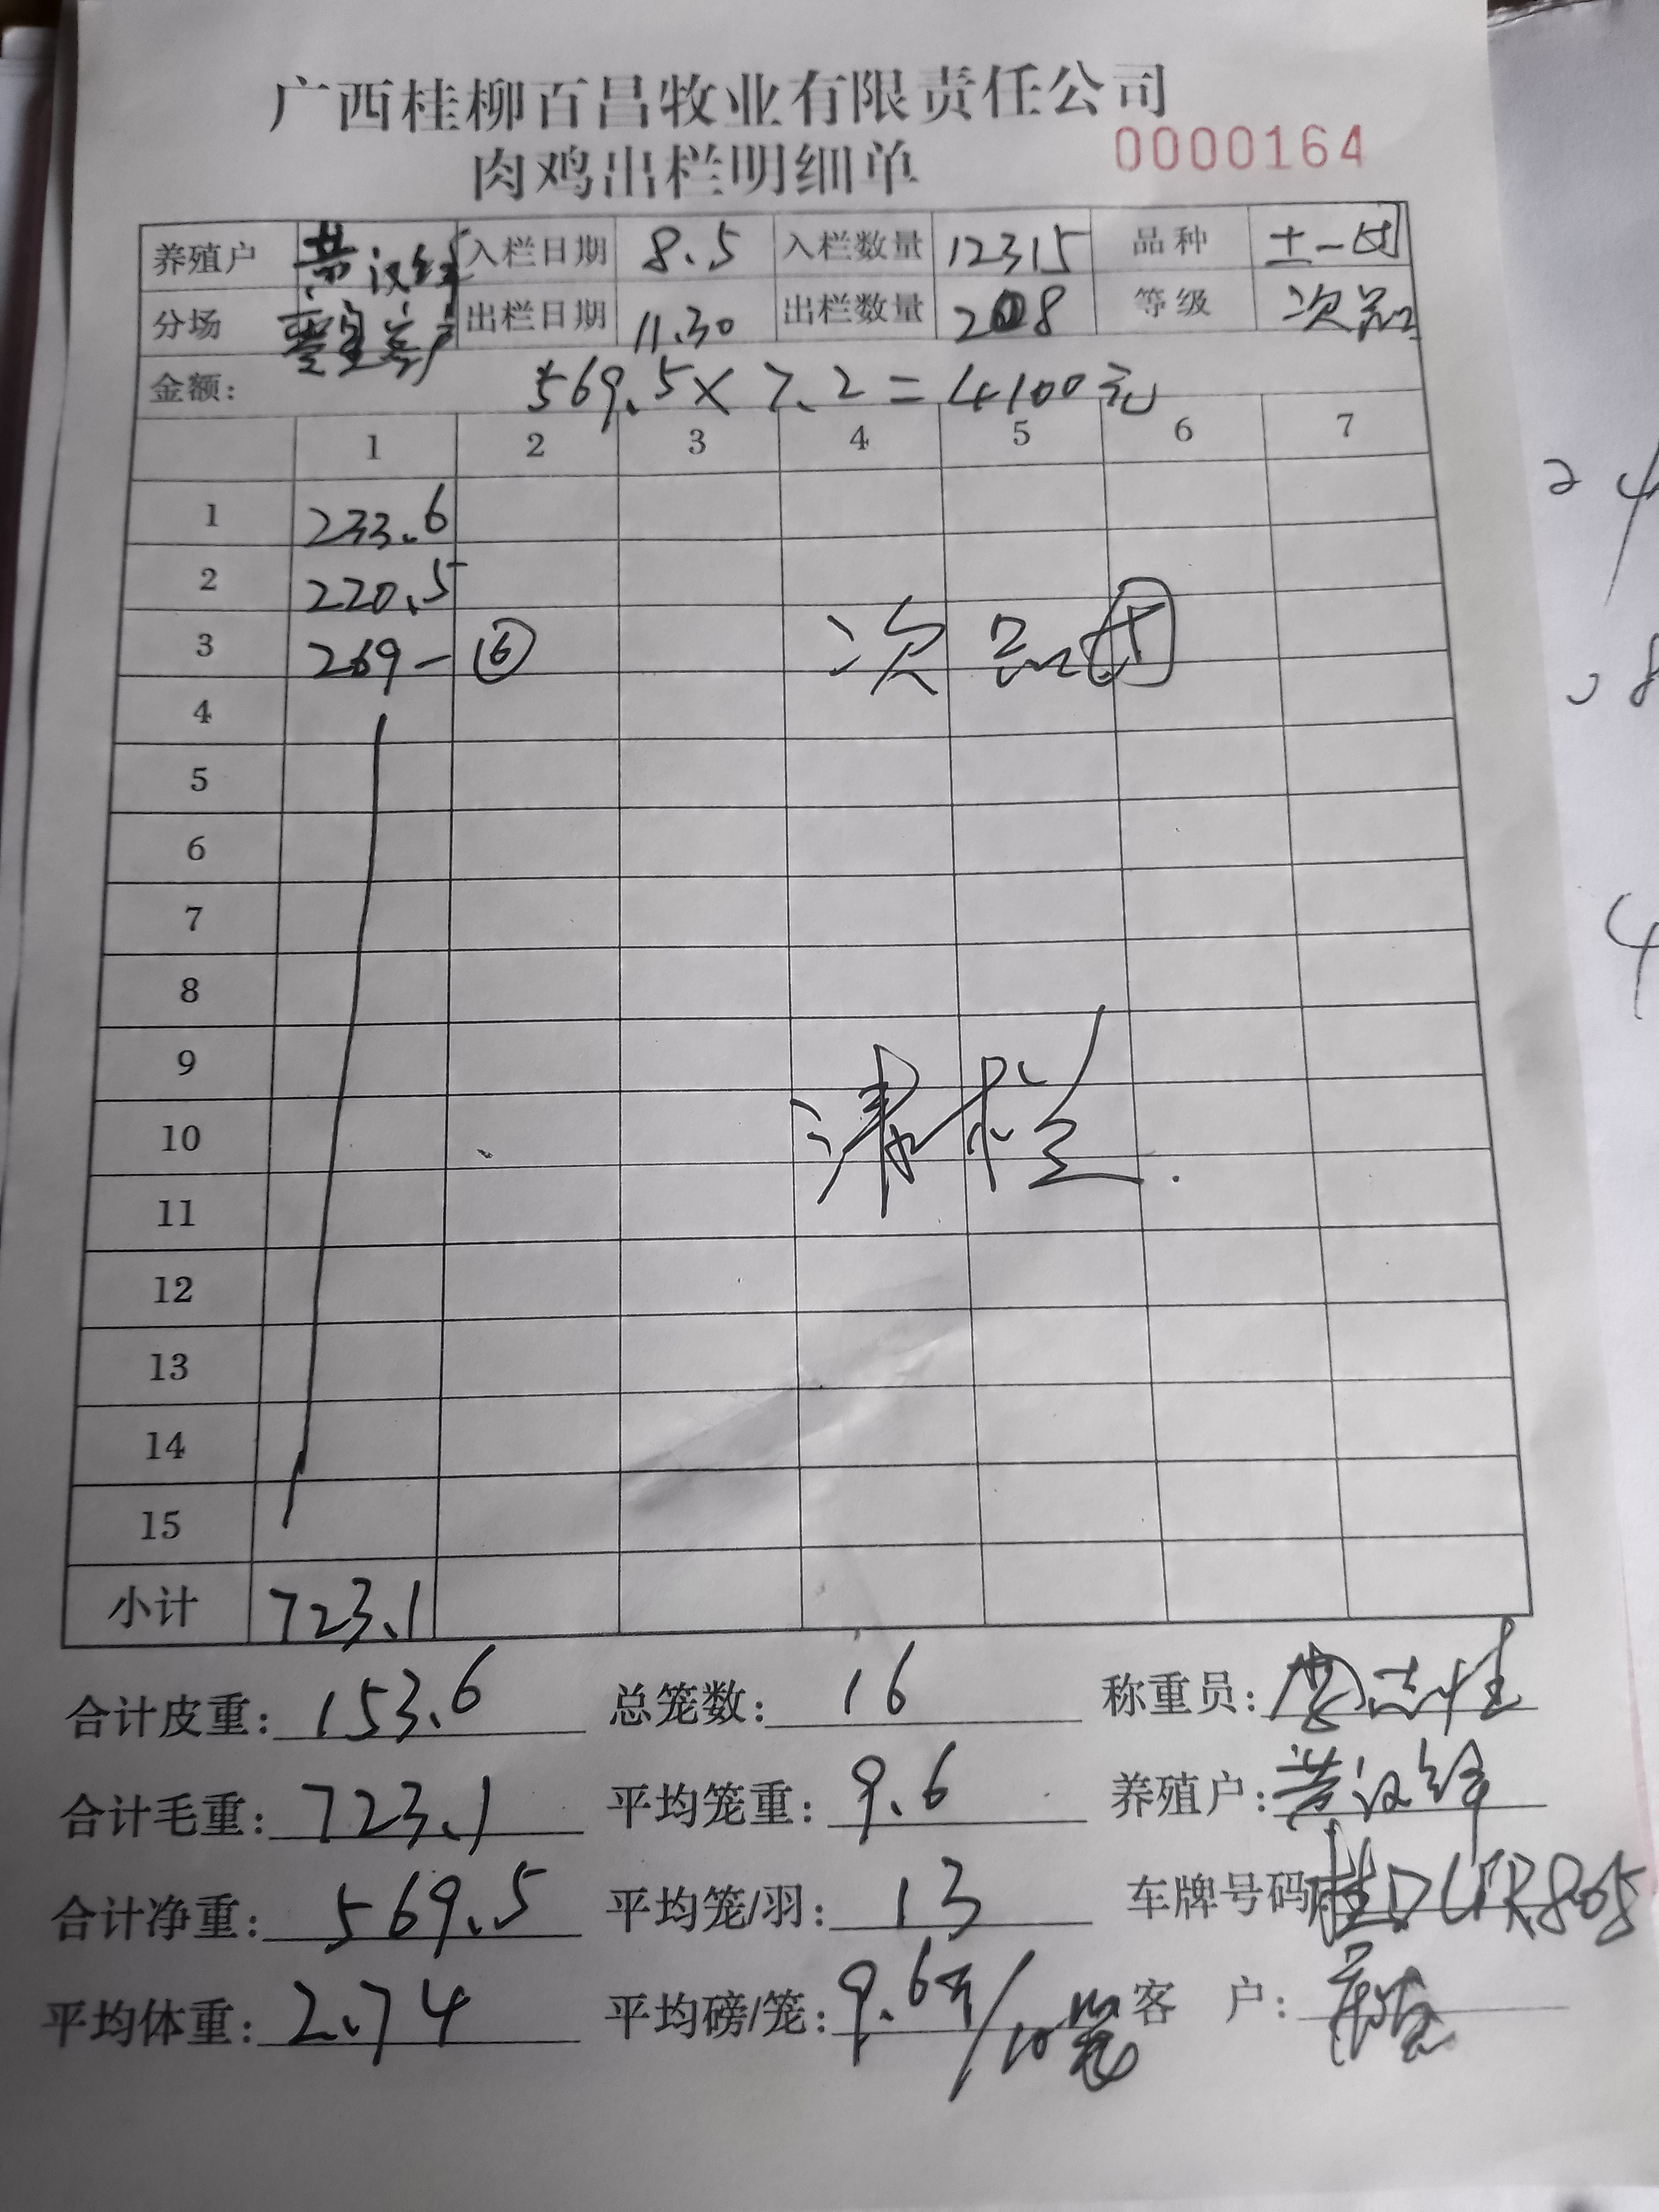 广西桂柳百昌牧业有限责任公司
肉鸡出栏明细单 0000164
养殖户 黄汉 入栏日期 8.5 入栏数量 12315 品种 土一
分场 出栏日期 11.30 出栏数量 208 等级 次品
金额: 569.5×7.2=4100元
1 2 3 4 5 6 7
1 233.6
2 220.5
3 269- ⑥ 次品
4
5
6
7
8
9
10 清栏.
11
12
13
14
15
小计 723.1
合计皮重: 153.6 总笼数: 16 称重员:
合计毛重: 723.1 平均笼重: 9.6 养殖户: 黄汉
合计净重: 569.5 平均笼/羽: 13 车牌号码 桂D
平均体重: 2.74 平均磅/笼: 9.6 客 户:
24
8
4